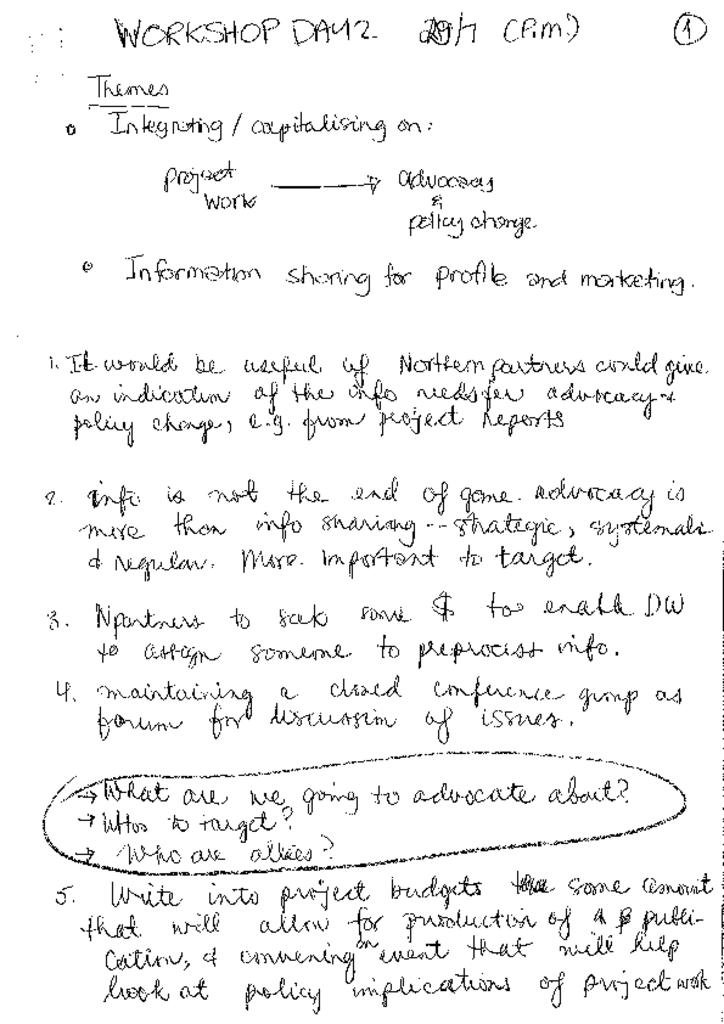 WORKSHOP DAY 2 29/7 (P.m.) 1
Themes
o Integrating / capitalising on:
project → advocacy
work &
policy change
o Information sharing for profile and marketing.
1. It would be useful if Northern partners could give
an indication of the info needs for advocacy +
policy change, e.g. from project reports
2. info is not the end of game. advocacy is
more than info sharing -- strategic, systematic
& regular. More important to target.
3. Npartners to seek some $ to enable DW
to assign someone to preprocess info.
4. maintaining a closed conference group as
forum for discussion of issues.
→ What are we going to advocate about?
→ Who to target?
→ Who are allies?
5. Write into project budgets some amount
that will allow for production of a publi-
cation, & convening an event that will help
look at policy implications of project work